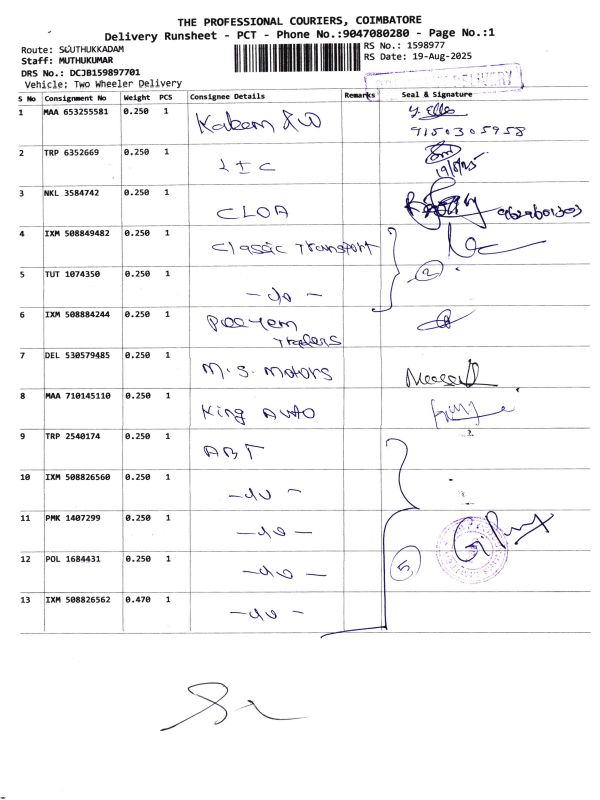 THE PROFESSIONAL COURIERS, COIMBATORE
Delivery Runsheet - PCT - Phone No.:9047080280 - Page No.:1
Route: SOUTHUKKADAM
RS No.: 1598977
Staff: MUTHUKUMAR
RS Date: 19-Aug-2025
DRS No.: DCJB159897701
Vehicle: Two Wheeler Delivery
DELIVERY
S No Consignment No Weight PCS Consignee Details Remarks Seal & Signature
1 MAA 653255581 0.250 1
9150305958
2 TRP 6352669 0.250 1 LIC
19/8/25
3 NKL 3584742 0.250 1 CLOA
4 IXM 508849482 0.250 1 Classic Transport
5 TUT 1074350 0.250 1 -do- 2
6 IXM 508884244 0.250 1
Traders
7 DEL 530579485 0.250 1 M.S. Motors
8 MAA 710145110 0.250 1 King Auto
9 TRP 2540174 0.250 1 ABT
10 IXM 508826560 0.250 1 -do-
11 PMK 1407299 0.250 1 -do-
12 POL 1684431 0.250 1 -do- 5
13 IXM 508826562 0.470 1 -do-